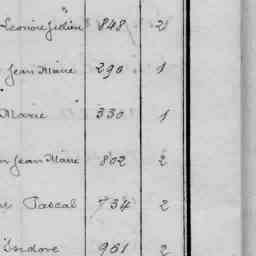 Leonore Gédéon 848 2
Jean Marie 290 1
Marie " 330 1
Jean Marie 802 2
Pascal 734 2
Isidore 961 2